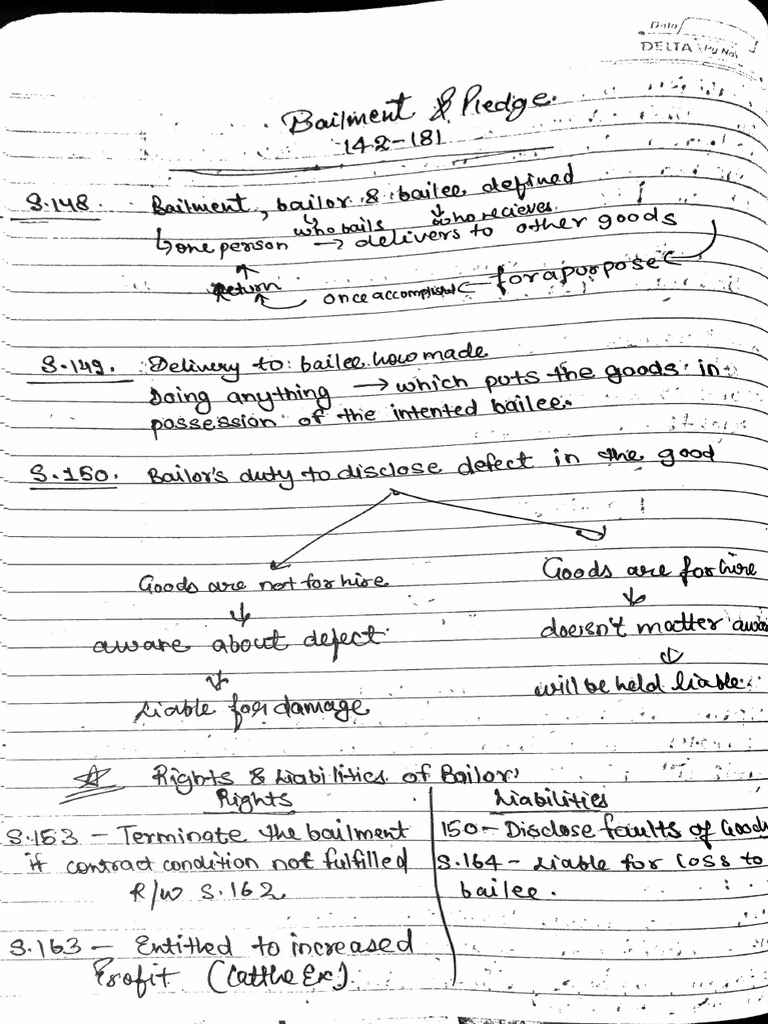 Date
DELTA Pg No.
Bailment & Pledge.
142-181
S.148. Bailment, bailor & bailee defined
who bails who recieves
one person → delivers to other goods
for a purpose
once accomplished
Return
S.149. Delivery to bailee how made
Doing anything → which puts the goods in
possession of the intented bailee.
S.150. Bailor's duty to disclose defect in the good
Goods are not for hire
aware about defect
Liable for damage
Goods are for hire
doesn't matter
will be held liable.
Rights & Liabilities of Bailor
Rights
S.153 - Terminate the bailment
if contract condition not fulfilled
R/W S.162
S.163 - Entitled to increased
Profit (Cattle Ex).
Liabilities
150 - Disclose faults of Goods
S.164 - Liable for Loss to
bailee.